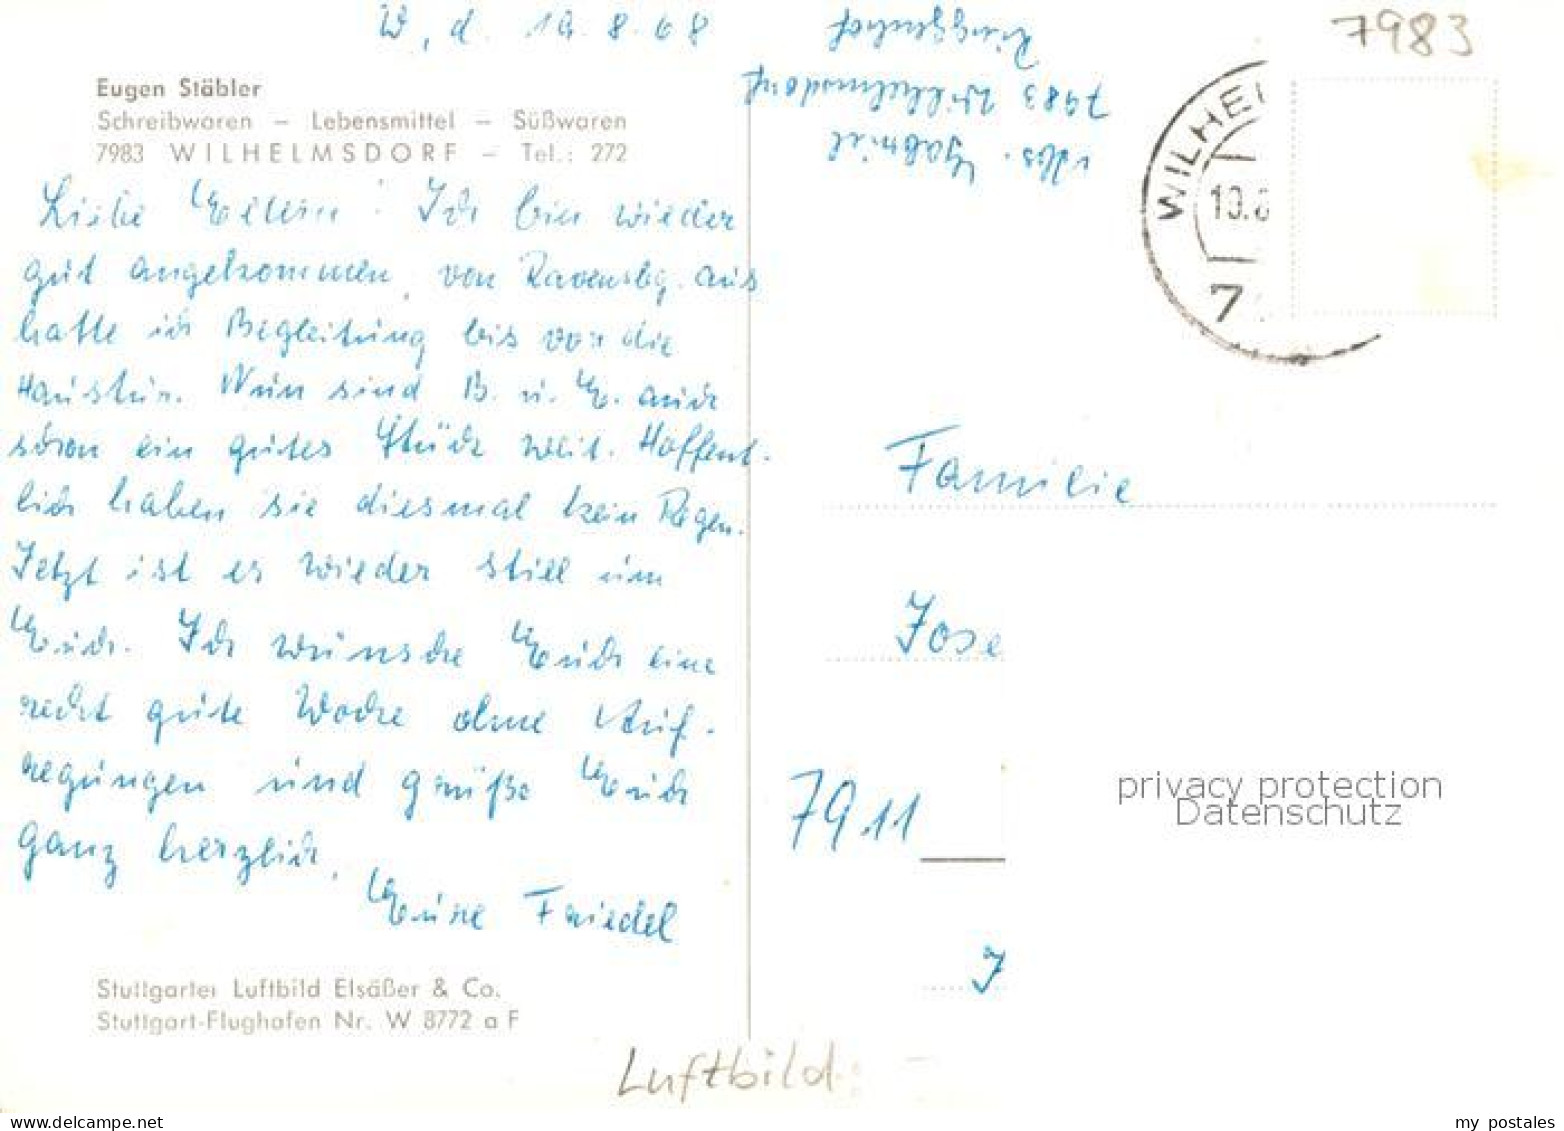 W, d. 19.8.68
Eugen Stäbler
Schreibwaren – Lebensmittel – Süßwaren
7983 WILHELMSDORF – Tel.: 272
Liebe Eltern! Ich bin wieder
gut angekommen, von Ravensbg. aus
hatte ich Begleitung bis vor die
Haustür. Nun sind B. u. E. auch
schon ein gutes Stück weit. Hoffent-
lich haben sie diesmal kein Regen.
Jetzt ist es wieder still um
Euch. Ich wünsche Euch eine
recht gute Woche ohne Auf-
regungen und grüße Euch
ganz herzlich,
Eure Friedel
Stuttgarter Luftbild Elsäßer & Co.
Stuttgart-Flughafen Nr. W 8772 a F
Abs. Gabriel
7983 Wilhelmsdorf
Ringgenhof
7983
WILHEL
19.8
7
Familie
Jose
7911
J
privacy protection
Datenschutz
Luftbild
www.delcampe.net
my_postales